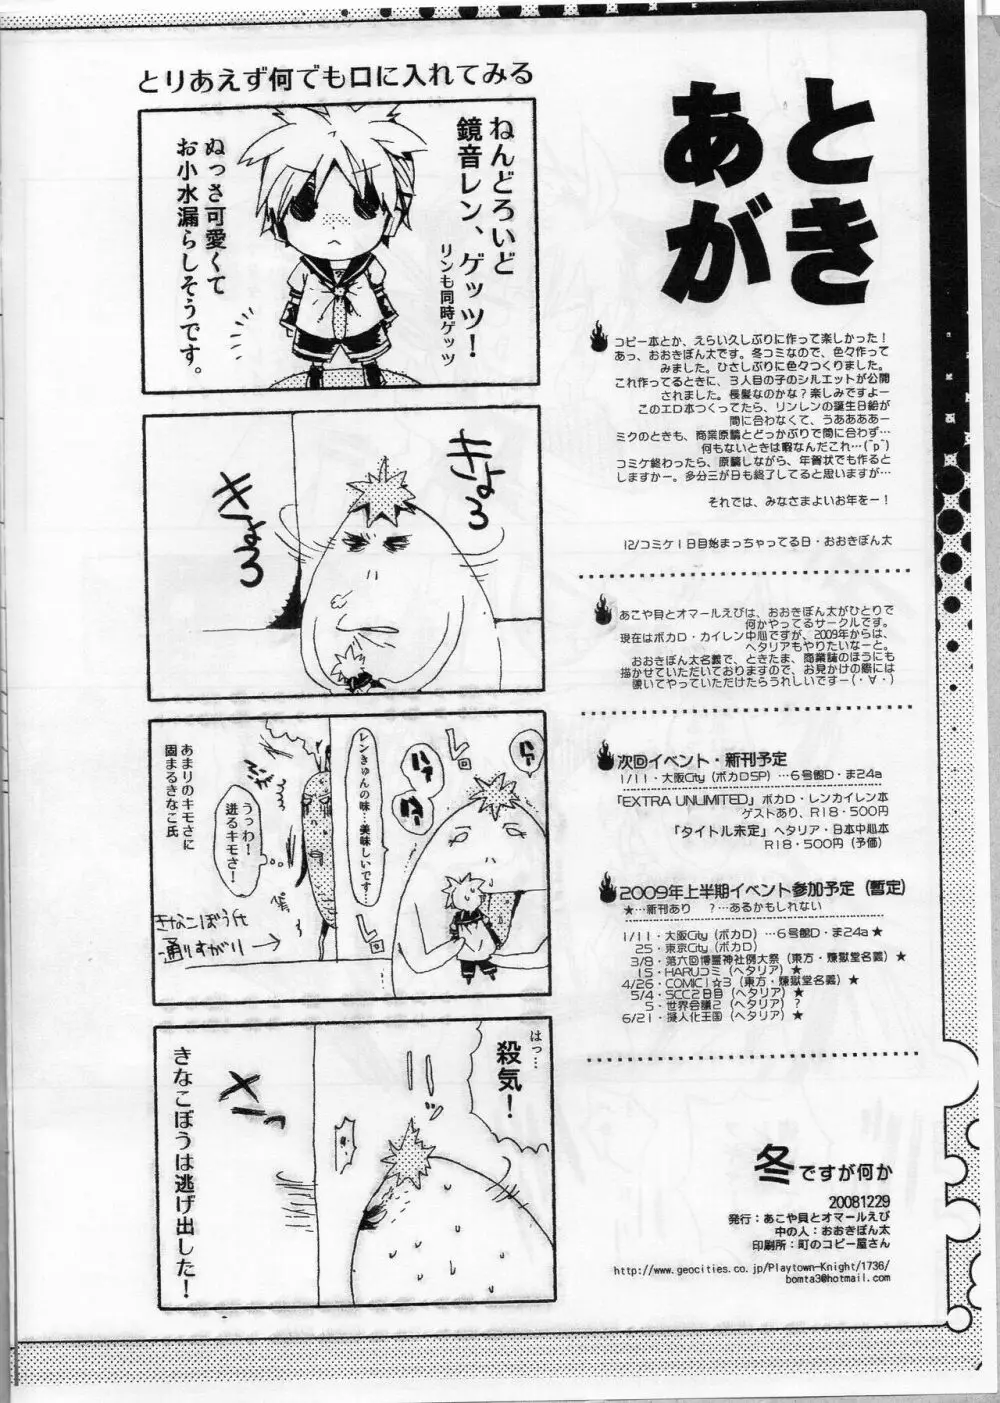 あとがき
コピー本とか、えらい久しぶりに作って楽しかった！
あっ、おおきぼん太です。冬コミなので、色々作って
みました。ひさしぶりに色々つくりました。
これ作ってるときに、3人目の子のシルエットが公開
されました。長髪なのかな？楽しみですよー
このエロ本つくってたら、リンレンの誕生日絵が
間に合わなくて、うああああー
ミクのときも、商業原稿とどっかぶりで間に合わず…
何もないときは暇なんだこれ…(˘p˘)
コミケ終わったら、原稿しながら、年賀状でも作ると
しますかー。多分三が日も終了してると思いますが…
それでは、みなさまよいお年をー！
12/コミケ1日目始まっちゃってる日・おおきぼん太
あこや貝とオマールえびは、おおきぼん太がひとりで
何かやってるサークルです。
現在はボカロ・カイレン中心ですが、2009年からは、
ヘタリアもやりたいなーと。
おおきぼん太名義で、ときたま、商業誌のほうにも
描かせていただいておりますので、お見かけの際には
覗いてやっていただけたらうれしいですー(・∀・)
次回イベント・新刊予定
1/11・大阪City（ボカロSP）…6号館D・ま24a
「EXTRA UNLIMITED」ボカロ・レンカイレン本
ゲストあり、R18・500円
「タイトル未定」ヘタリア・日本中心本
R18・500円（予価）
2009年上半期イベント参加予定（暫定）
★…新刊あり　？…あるかもしれない
1/11・大阪City（ボカロ）…6号館D・ま24a★
25・東京City（ボカロ）
3/8・第六回博麗神社例大祭（東方・煉獄堂名義）★
15・HARUコミ（ヘタリア）★
4/26・COMIC1☆3（東方・煉獄堂名義）★
5/4・SCC2日目（ヘタリア）★
5・世界会議2（ヘタリア）？
6/21・擬人化王国（ヘタリア）★
冬ですが何か
20081229
発行：あこや貝とオマールえび
中の人：おおきぼん太
印刷所：町のコピー屋さん
http://www.geocities.co.jp/Playtown-Knight/1736/
bomta3@hotmail.com
とりあえず何でも口に入れてみる
ねんどろいど
鏡音レン、ゲッツ！
リンも同時ゲッツ
ぬっさ可愛くて
お小水漏らしそうです。
きょろ
きょろ
ハァ
ハァ
ハァ
レロ
レロ
レンきゅんの味…美味しいです…
うっわ！
迸るキモさ！
あまりのキモさに
固まるきなこ氏
きなこぼう氏
通りすがり
はっ…
殺気！
きなこぼうは逃げ出した！